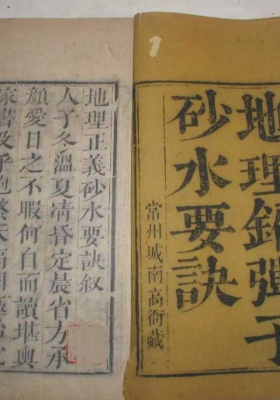 地理鉛彈子
砂水要訣
常州城南高衙藏
地理正義砂水要訣敘
人子冬溫夏凊昏定晨省方承
顏愛日之不暇何自而讀堪輿
家書及乎終天